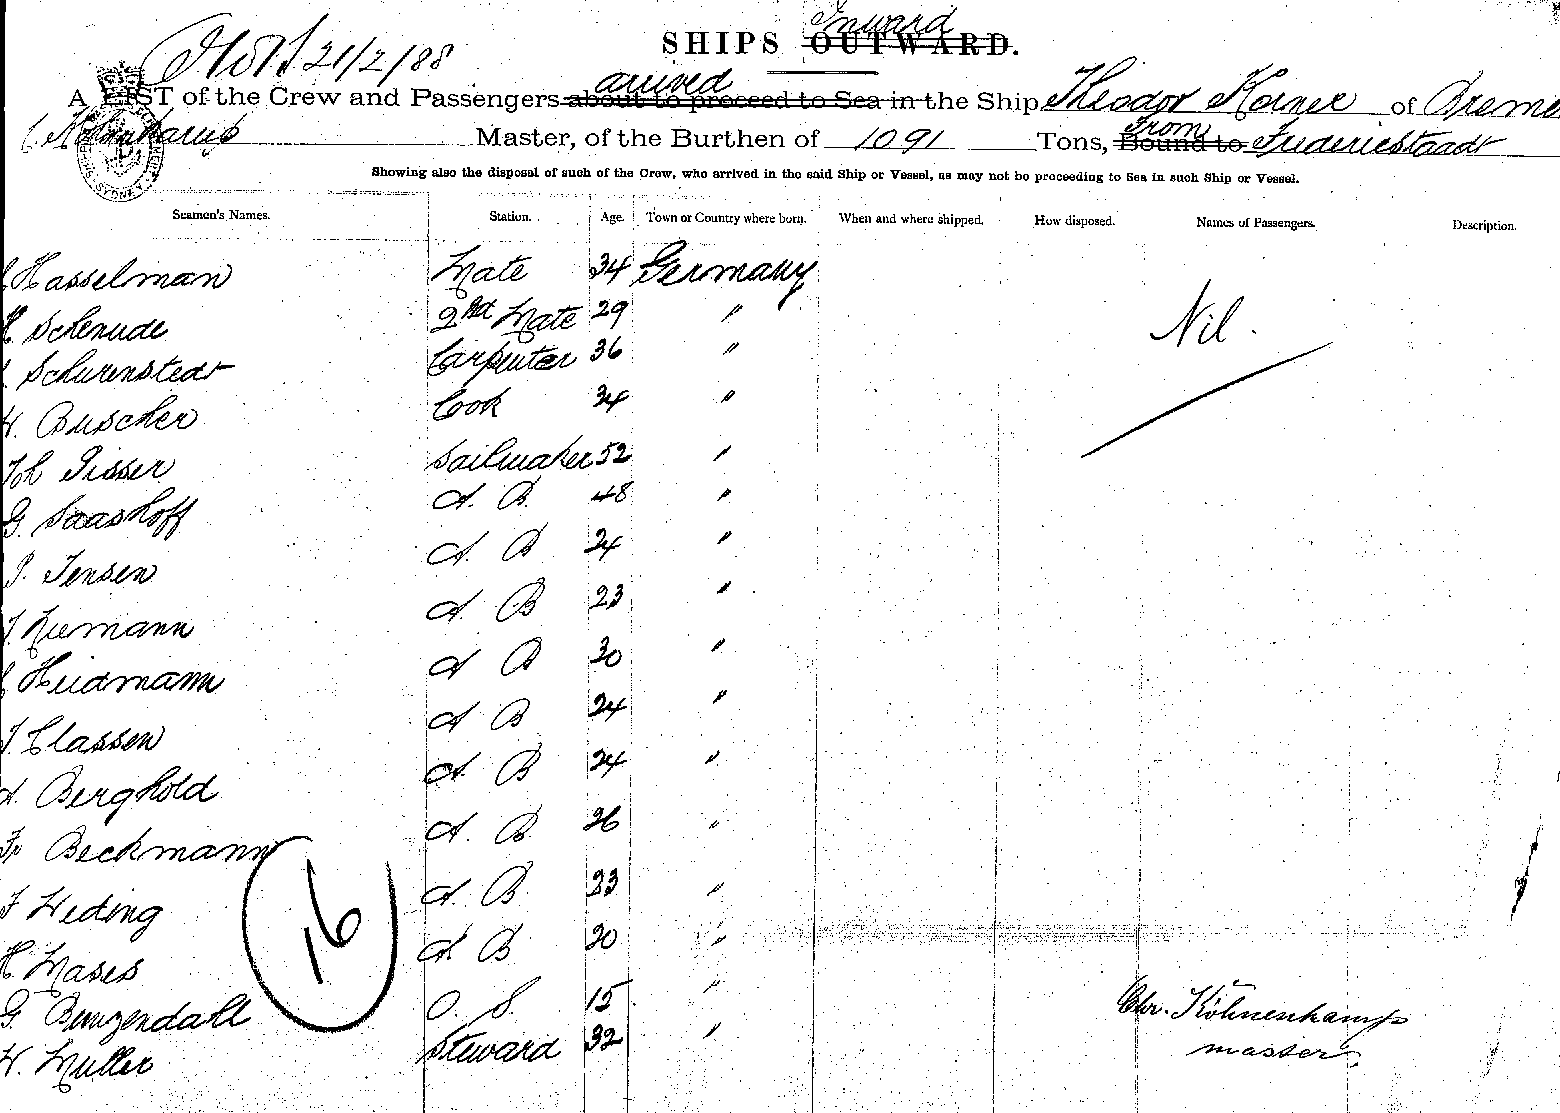 21/2/88
Inward
SHIPS OUTWARD.
arrived
A LIST of the Crew and Passengers about to proceed to Sea in the Ship Theodor Korner of Bremen
Master, of the Burthen of 1091 Tons, Bound to from Fredericstaadt
Showing also the disposal of such of the Crew, who arrived in the said Ship or Vessel, as may not be proceeding to Sea in such Ship or Vessel.
Seamen's Names. Station. Age. Town or Country where born. When and where shipped. How disposed. Names of Passengers. Description.
Hasselman Mate 34 Germany
H Schenude 2nd Mate 29 "
Schurenstedt Carpenter 36 "
Nil.
W. Buscher Cook 34 "
Joh Pisser Sailmaker 52 "
G. Saashoff A. B. 48 "
P. Jensen A. B 24 "
J. Niemann A. B 23 "
Heidmann A B 30 "
J Classen A B 24 "
A. Berghold A. B 24 "
Fr Beckmann A. B. 26 "
F Weding A. B. 23 "
16
H Mases A B 20 "
G. Bunzendahl O. S. 15 "
W. Muller Steward 32 "
Chr. Köhnenkamp
master